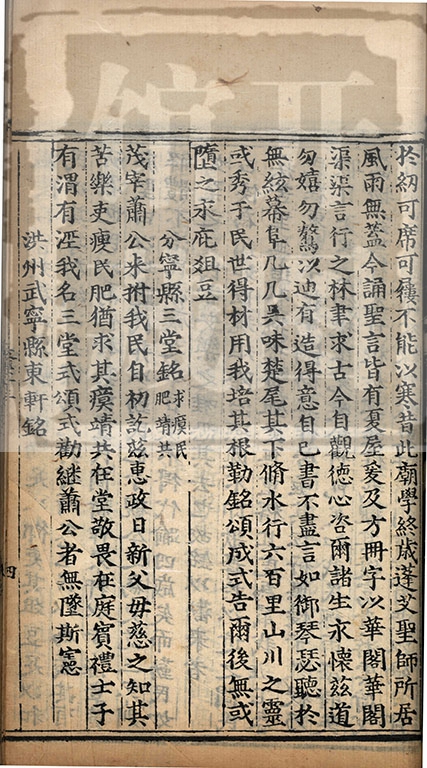 於紉可席可屨不能以寒昔此廟學終歲蓬艾聖師所居
風雨無蓋今誦聖言皆有夏屋爰及方冊字以華閣華閣
渠渠言行之林聿求古今自觀德心咨爾諸生永懷茲道
勿嬉勿驁以迪有造得意自已書不盡言如御琴瑟聽於
無絃幕阜几几吳味楚尾其下脩水行六百里山川之靈
或秀于民世得材用我培其根勒銘頌成式告爾後無或
墮之永庇俎豆
分寧縣三堂銘 求瘼民肥靖共
茂宰蕭公來拊我民自初訖茲惠政日新父母慈之知其
苦樂吏瘐民肥猶求其瘼靖共在堂敬畏在庭賓禮士子
有渭有涇我名三堂式頌式勸繼蕭公者無墜斯憲
洪州武寧縣東軒銘
四